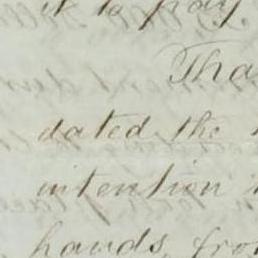 it to pay
Tha
dated the
intention
hands, fro